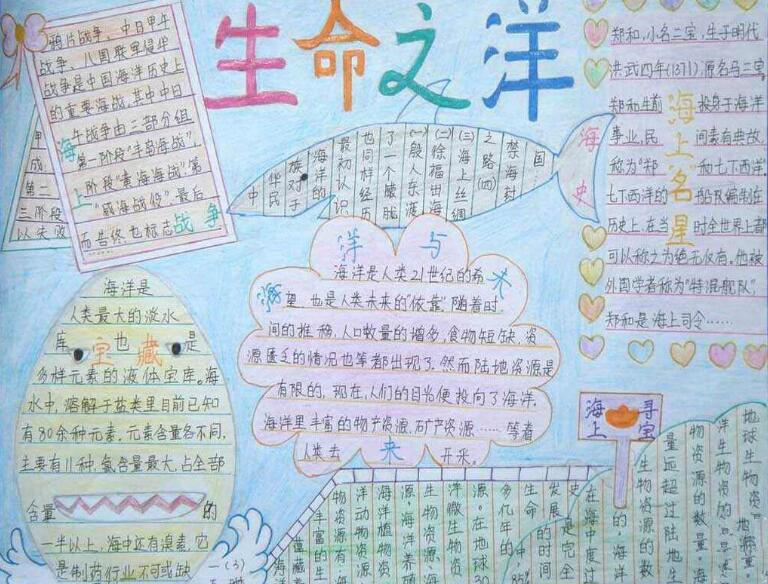 生命之洋
鸦片战争、中日甲午
战争、八国联军侵华
战争是中国海洋历史上
的重要海战,其中中日
甲午战争由三部分组
第一阶段"丰岛海战",第
二阶段"黄海海战",第
"威海战役".最后
而告终,也标志
海上战争
甲
成
第二
三阶段
以失败
中
华民
族对于
海洋的
最初认识
也同样经历
了一个朦胧
(一)殷人东渡
(二)徐福出海
(三)海上丝绸
之路(四)
禁海封
国…
海史
郑和,小名三宝,生于明代
洪武四年(1371)源名马三宝。
郑和生前 投身于海洋
事业,民 间素有典故,
称为"郑 和七下西洋.
七下西洋的 船队编制在
历史上,在当 时全世界上都
可以称之为绝无仅有。他被
外国学者称为"特混舰队".
郑和是海上司令……
海上名星
海洋是
人类最大的淡水
库 也 是
宝藏
多样元素的液体宝库。海
水中,溶解于盐类里目前已知
有80余种元素,元素含量各不同,
主要有11种,氯含量最大,占全部
含量 的
一半以上,海中还有溴素,它
是制药行业不可或缺
洋与未来
海洋是人类21世纪的希
望,也是人类未来的"依靠"随着时
间的推移,人口数量的增多,食物短缺,资
源匮乏的情况也等都出现了.然而陆地资源是
有限的,现在,人们的目光便投向了海洋.
海洋里丰富的物产资源,矿产资源……等着
人类去 开采。
海上寻宝
地球生物资
洋生物资
物资源的数量
量远超过陆地生
生物资源的数
的,海洋
在海中度过
史是完全
发展的时间
生命
多亿年的
源。在地球30
洋微生物资
生物资源
源,海洋养殖
洋植物资
洋动物资
物资源有海
丰富的生
(3)